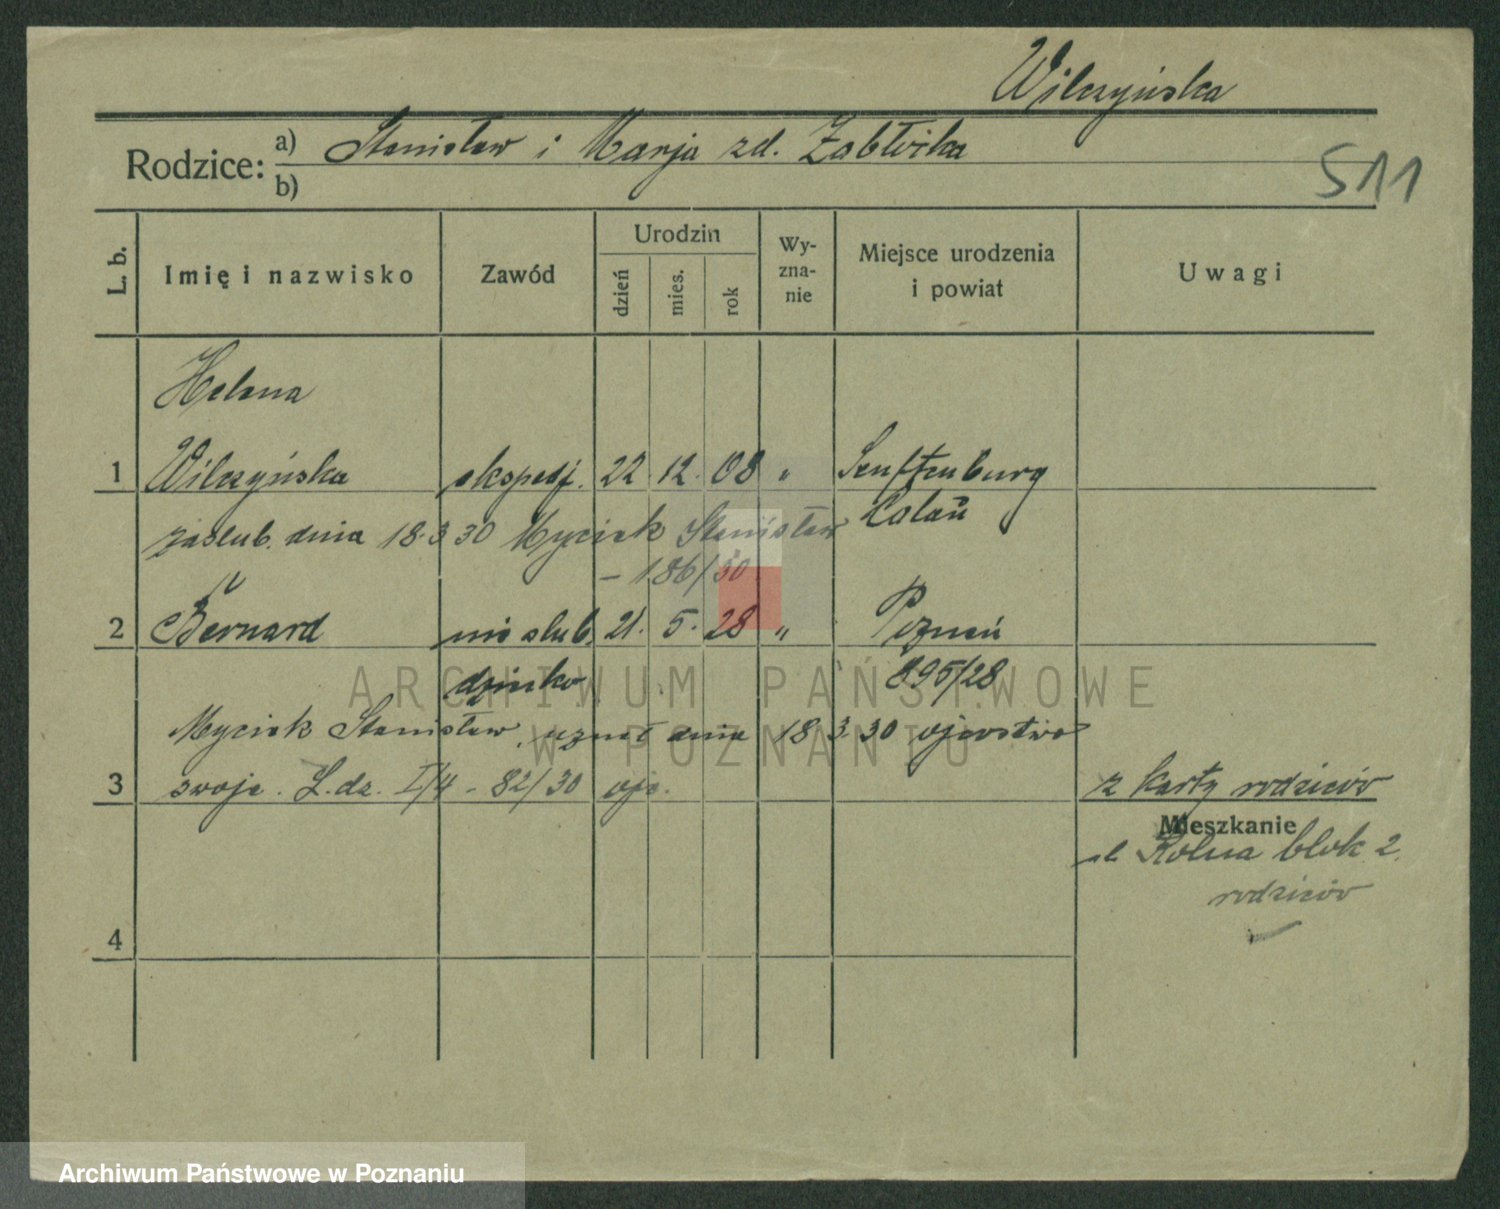 Wilczyńska
Rodzice: a) Stanisław i Marja zd. Zabłocka
b)
511
L. b.
Imię i nazwisko
Zawód
Urodzin
dzień
mies.
rok
Wy-
zna-
nie
Miejsce urodzenia
i powiat
Uwagi
Helena
1 Wilczyńska ekspedj. 22. 12. 08 " Senftenburg
Calau
zaślub. dnia 18.3.30 Myciek Stanisław
- 186/30
2 Bernard nieślub. 21. 5. 28 " Poznań
dziecko 895/28
Myciek Stanisław, uznał dnia 18 3 30 ojcostwo
3 swoje. L.dz. I/4 - 82/30 ojc.
z karty rodziców
Mieszkanie
ul. Rolna blok 2.
rodziców
4
ARCHIWUM PAŃSTWOWE
W POZNANIU
Archiwum Państwowe w Poznaniu